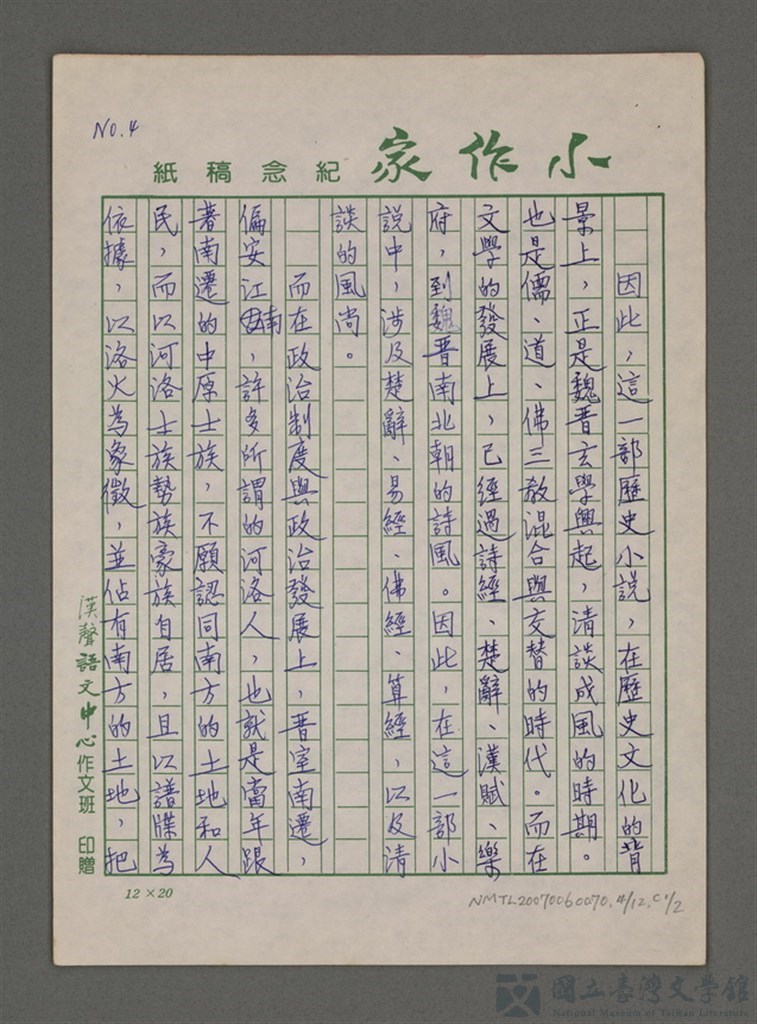 NO.4
小作家 紀念稿紙
因此，這一部歷史小說，在歷史文化的背
景上，正是魏晋玄學興起，清談成風的時期。
也是儒、道、佛三教混合與交替的時代。而在
文學的發展上，已經過詩經、楚辭、漢賦、樂
府，到魏晋南北朝的詩風。因此，在這一部小
說中，涉及楚辭、易經、佛經、算經，以及清
談的風尚。
而在政治制度與政治發展上，晋室南遷，
偏安江南，許多所謂的河洛人，也就是當年跟
著南遷的中原士族，不願認同南方的土地和人
民，而以河洛士族勢族豪族自居，且以譜牒為
依據，以洛火為象徵，並佔有南方的土地，把
漢聲語文中心作文班 印贈
12×20
NMTL20070060070.4/12.C1/2
國立臺灣文學館
National Museum of Taiwan Literature